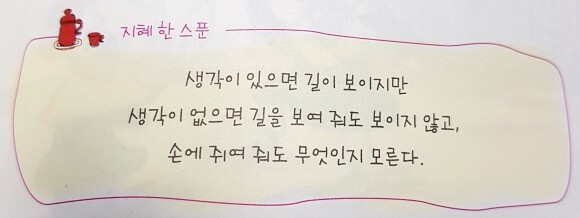 지혜 한 스푼
생각이 있으면 길이 보이지만
생각이 없으면 길을 보여 줘도 보이지 않고,
손에 쥐여 줘도 무엇인지 모른다.